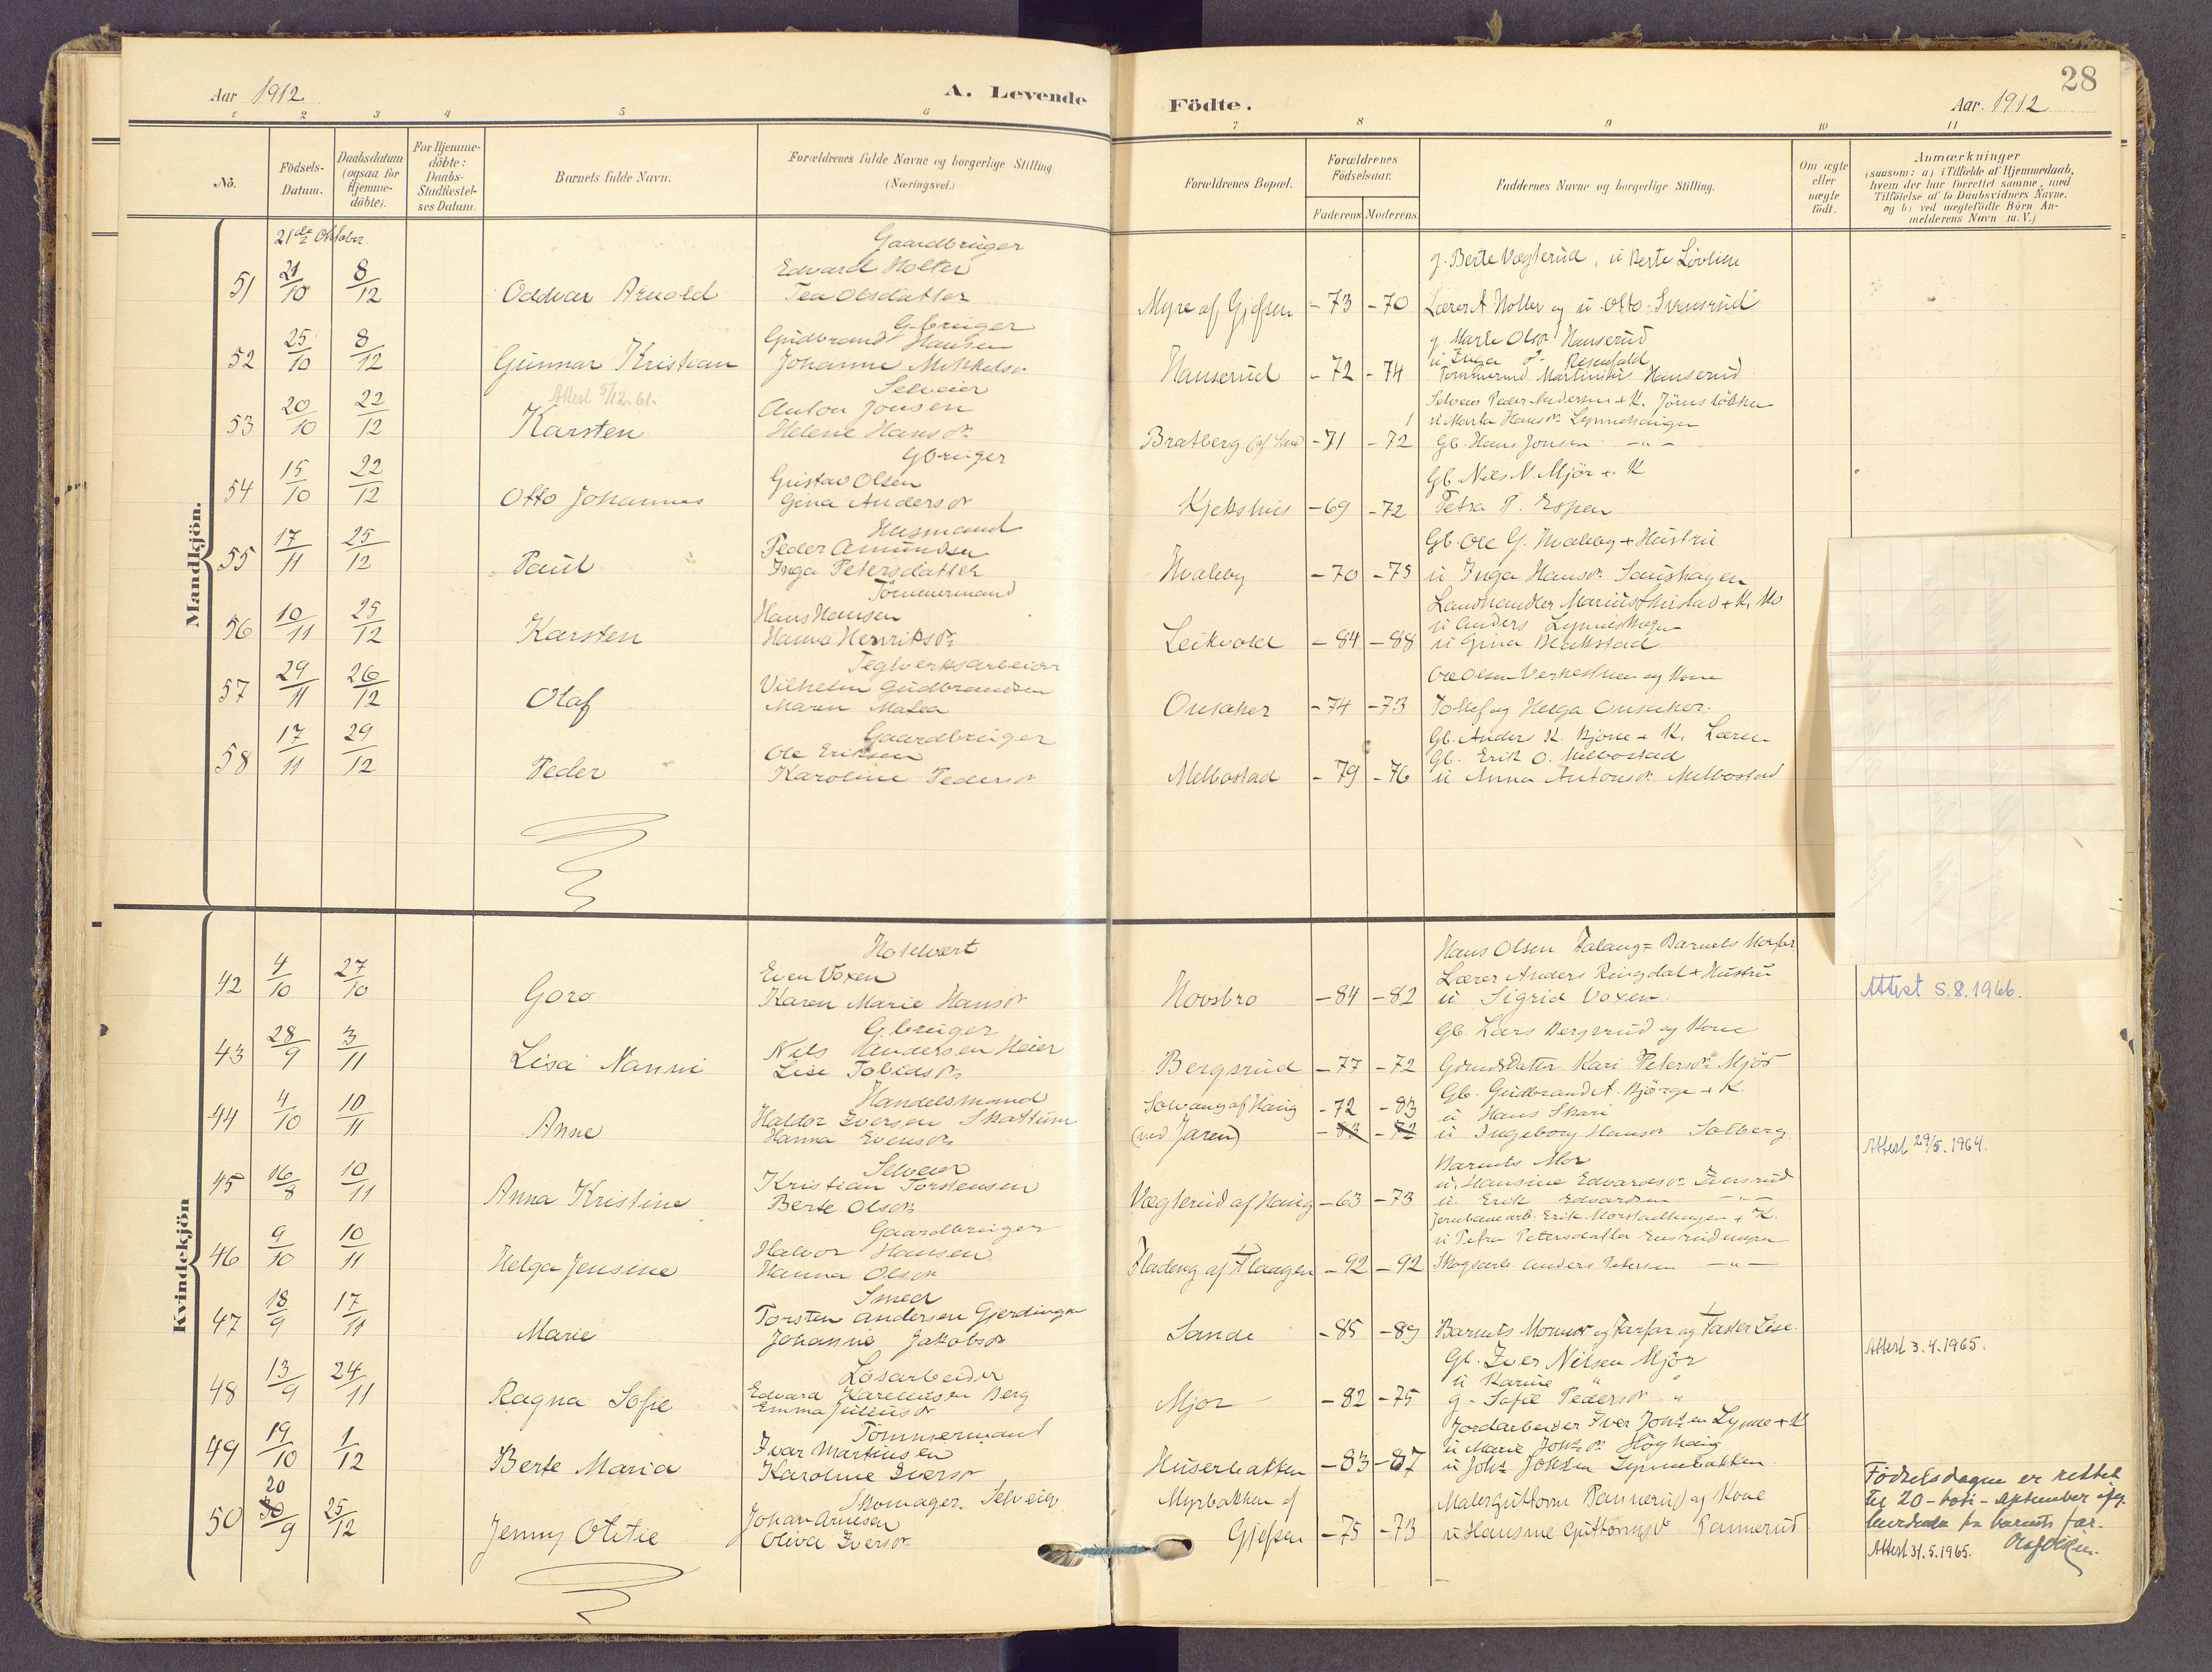 28
Aar 1912
A. Levende
Födte.
Aar. 1912
1 2 3 4 5 6 7 8 9 10 11
No.
Födsels-Datum.
Daabsdatum (ogsaa for Hjemme-döbte).
For Hjemme-döbte: Daabs-Stadfæstel-ses Datum.
Barnets fulde Navn.
Forældrenes fulde Navne og borgerlige Stilling (Næringsvei.)
Forældrenes Bopæl.
Forældrenes Födselsaar.
Faderens Moderens
Faddernes Navne og borgerlige Stilling.
Om ægte eller uægte födt.
Anmærkninger
(saasom: a) i Tilfælde af Hjemmedaab,
hvem der har forrettet samme, med
Tilföielse af to Daabsvidners Navne.
og b) ved uægtefödte Börn An-
melderens Navn m. V.)
Mandkjön.
21de Oktober.
Gaardbruger
g. Berte Vægterud, u Berte Lövlien
51 21/10 8/12 Oddvar Arnold Edvard Holter
Tea Olsdatter Myre af Gjefsen -73 -70 Lærer A Holter og u Otto Svensrud
G.bruger
g. Marte Olsd Hanserud
52 25/10 8/12 Gunnar Kristian Gudbrand Hansen
Johanne Mikkelsd Hanserud -72 -74 Tömmermd Martinius Hanserud
Attest 5/12.61.
Selveier
53 20/10 22/12 Karsten Anton Jonsen
Helene Hansdr Bratberg -71 -72 u Marta Hansdr Lynnehaugen
Gb. Hans Jonsen -"-
Gbruger
Gb. Nils N. Mjör + K
54 15/10 22/12 Otto Johannes Gustav Olsen
Gina Andersdr Kjekshus -69 -72 Petra P. Espen
Husmand
Gb. Ole G. Hvaleby + Hustru
55 17/11 25/12 Paul Peder Amundsen
Inga Petersdatter Hvaleby -70 -75 u Inga Hansdr
Tömmermand
56 10/11 25/12 Karsten Hans Hansen
Hanna Henriksdr Leikvold -84 -88 u Gina
Teglverksarbeider
Ole Olsen og Kone
57 29/11 26/12 Olaf Vilhelm Gudbrandsen
Maren Matea Onsaker -74 -73 Tollef og Helga Onsaker.
Gaardbruger
Gb. Anders K. Bjone + K. Læren
Gb. Erik O. Melbostad
58 17/11 29/12 Peder Ole Eriksen
Karoline Pedersdr Melbostad -79 -76 u Anna Antonsdr Melbostad
Kvindekjön
Hans Olsen Falang = Barnets Morfar
42 4/10 27/10 Goro Even Voxen
Karen Marie Hansdr Hovsbro -84 -82 Lærer Anders Ringdal + Hustru
u Sigrid Voxen. Attest 5.8.1966.
G.bruger
Gb. Lars Bergsrud og Kone
43 28/9 3/11 Lisa Nanni Nils Andersen Heier
Lise Tobiasdr Bergsrud -77 -72 Gaardsdatter Kari Petersdr Mjör
Handelsmand
Gb. Gudbrand A. Björge + K.
44 4/10 10/11 Anne Haldor Iversen Skattum
Hanna Evensdr Solvang af Haug -72 -83 u Hans Skari
(ved Jaren) -83 -72 u Ingeborg Hansdr Solberg.
Attest 29/5.1964.
Selveier
Barnets Mor
45 16/8 10/11 Anna Kristine Kristian Torstensen
Berte Olsdr Vægterud af Haug -63 -73 u. Hansine Edvardsdr Iversrud
u. Erik Edvardsen -"-
Gaardbruger
Jernbanearb. Erik Morstadhagen + K.
u Petra Petersdatter
46 9/10 10/11 Helga Jensine Halvor Hansen
Hanna Olsdr Fladeng af Flaagen -92 -92 Skogsarb. Anders Petersen -"-
Smed
47 18/9 17/11 Marie Torsten Andersen Gjerdingen
Johanne Jakobsdr Sande -85 -89 Barnets Mormor og Farfar og Faster Lise.
Attest 3.4.1965.
Lösarbeider
Gb. Iver Nilsen Mjör
48 13/9 24/11 Ragna Sofie Edvard Kareliusen Berg
Emma Juliusdr Mjor -82 -75 u Karine "
g - Sofie Pedersdr "
Tömmermand
Jordarbeider Iver Johsen Lynne + K
49 19/10 1/12 Berte Maria Ivar Martinsen
Karoline Iversdr Huserbakken -83 -87 u Marie Johsdr Höghaug
u Johs Johsen Lynnebakken.
Skomager. Selveier
50 20 30/9 25/12 Jenny Otitie Johan Arnesen
Oliva Iversdr Myrbakken af
Gjefsen -75 -73 Maler Guttorm Rannerud og Kone
u Hansine Guttormsdr Rannerud
Födselsdagen er rettet
til 20 - toti - September
fra barnets far.
Attest 31.5.1965.